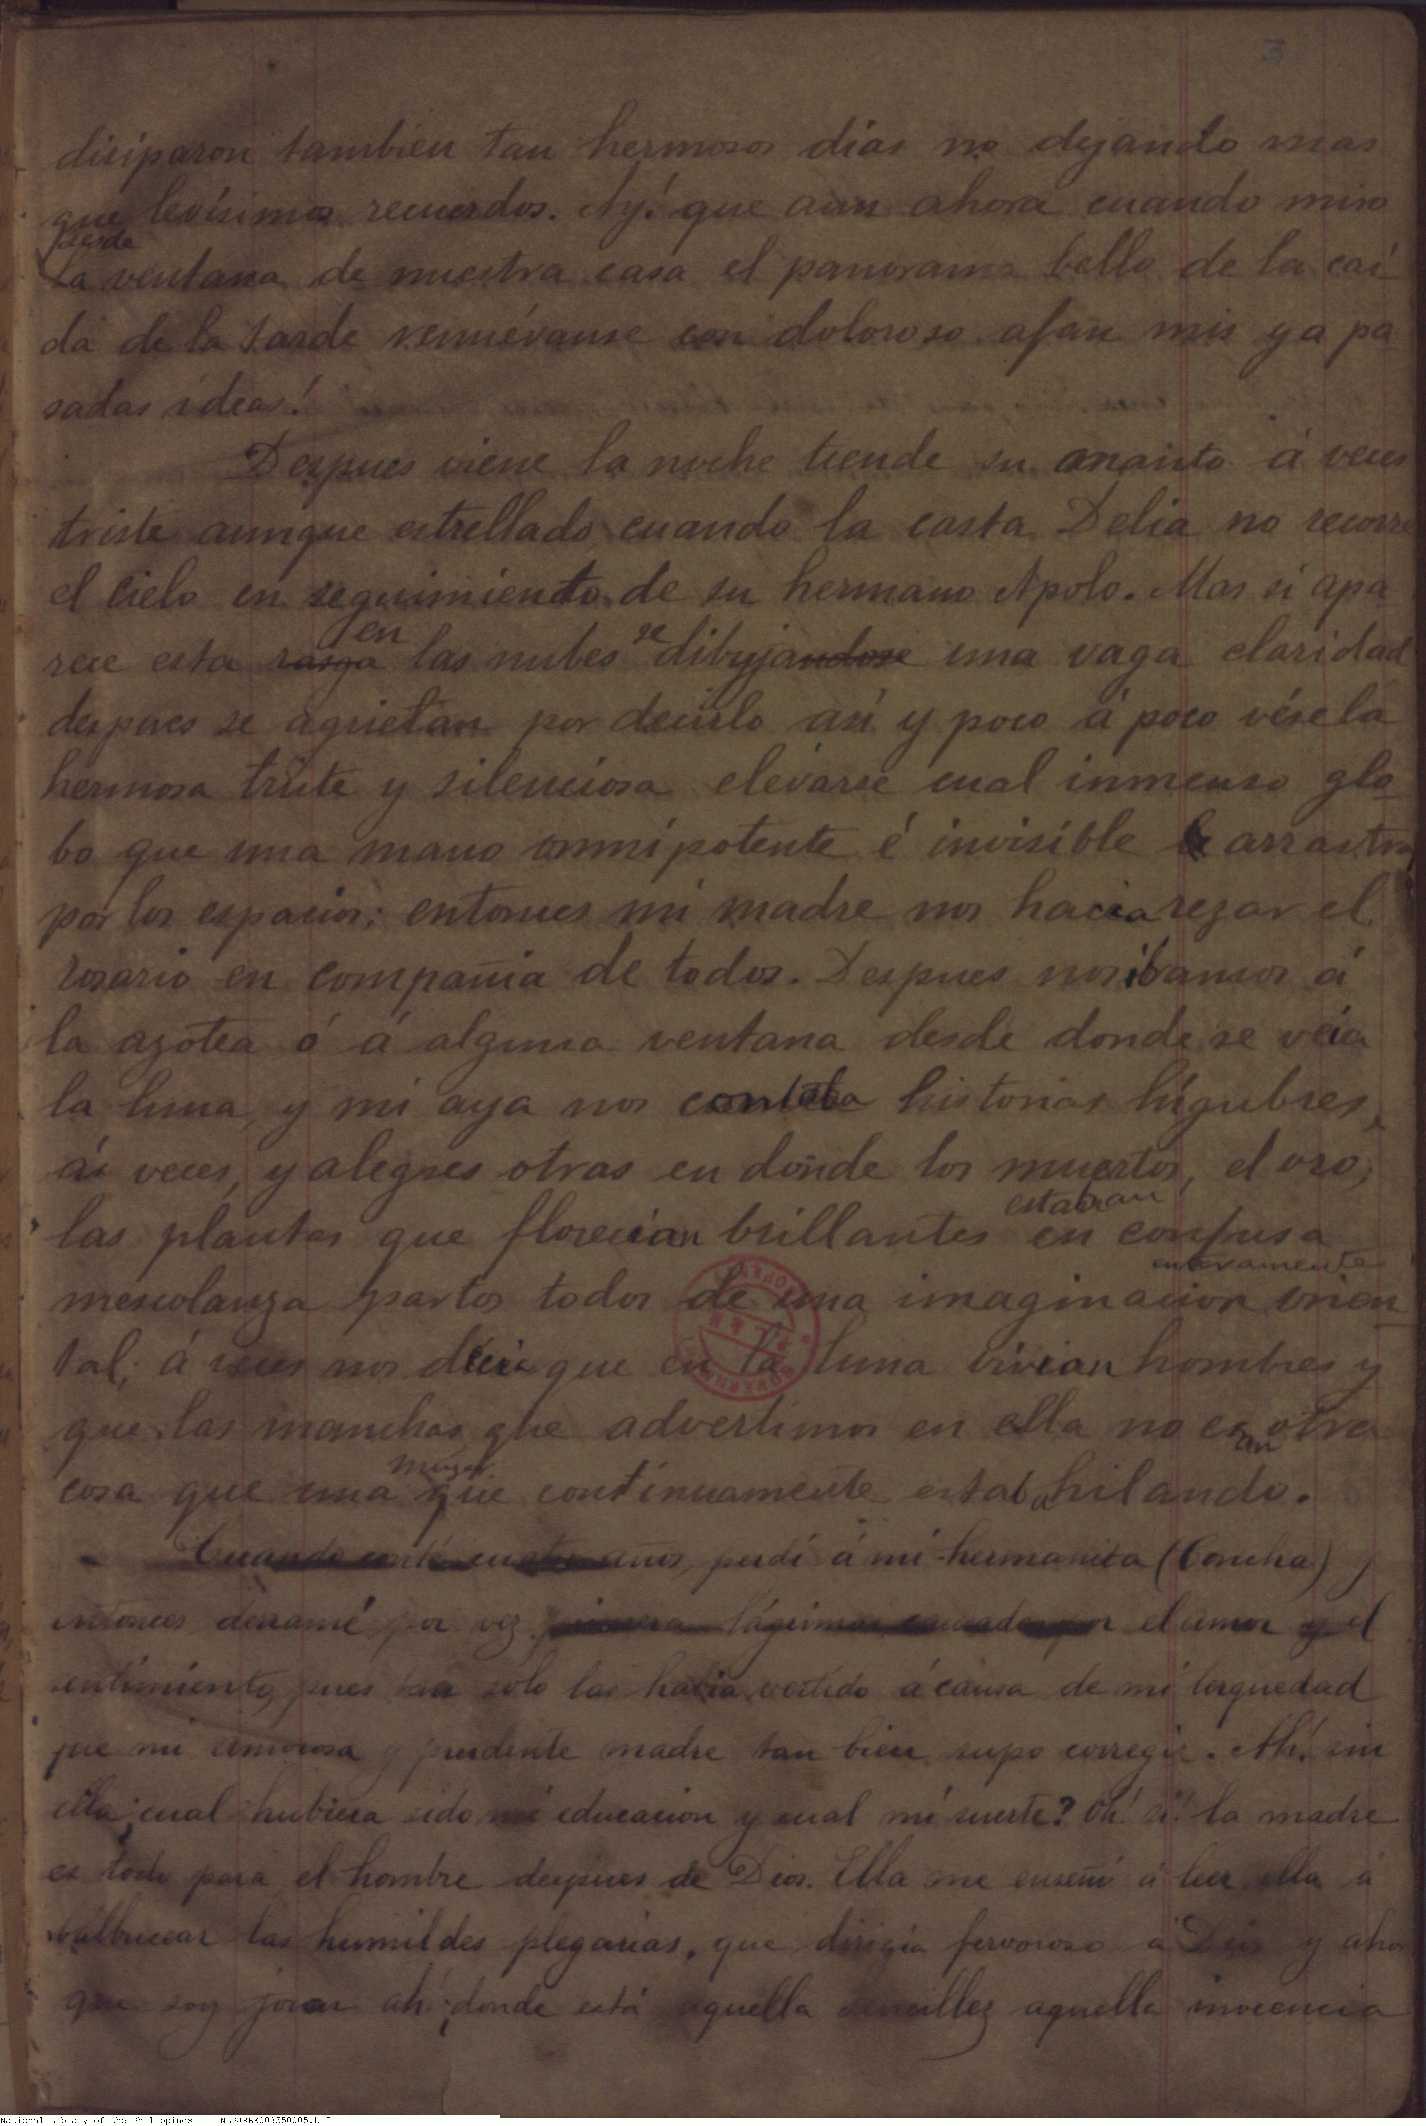 3
disiparon tambien tan hermosos dias no dejando mas
que levísimos recuerdos. Ay! que aun ahora cuando miro
desde
la ventana de nuestra casa el panorama bello de la cai
da de la tarde renuévanse con doloroso afan mis ya pa
sadas ideas!
Despues viene la noche tiende su manto á veces
triste aunque estrellado cuando la casta Delia no recorre
el cielo en seguimiento de su hermano Apolo. Mas si apa
en se
rece esta rasga las nubes dibujandose una vaga claridad
despues se agrietan por decirlo asi y poco á poco vésela
hermosa triste y silenciosa elevarse cual inmenso glo-
bo que una mano omnipotente é invisible arrastra
por los espacios: entonces mi madre nos hacia rezar el
rosario en compañia de todos. Despues nos ibamos á
la azotea ó á alguna ventana desde donde se veia
la luna, y mi aya nos contaba historias lúgubres,
á veces, y alegres otras en donde los muertos, el oro,
estaban
las plantas que florecian brillantes en confusa
enteramente
mescolanza partos todos de una imaginacion orien
tal; á veces nos decia que en la luna vivian hombres y
que las manchas que advertimos en ella no eran otra
muger
cosa que una que continuamente estaba hilando.
Cuando conté cuatro años, perdí á mi hermanita (Concha) y
entonces derramé por vez primera lágrimas causadas por el amor y el
sentimiento, pues tan solo las habia vertido á causa de mi terquedad
que mi amorosa y prudente madre tan bien supo corregir. Ah! sin
ella ¿cual hubiera sido mi educacion y cual mi suerte? Oh! si! la madre
es todo para el hombre despues de Dios. Ella me enseñó á leer, ella á
balbucear las humildes plegarias, que dirigia fervoroso á Dios y ahora
que soy joven ah! ¿donde está aquella sencillez aquella inocencia
National Library of the Philippines